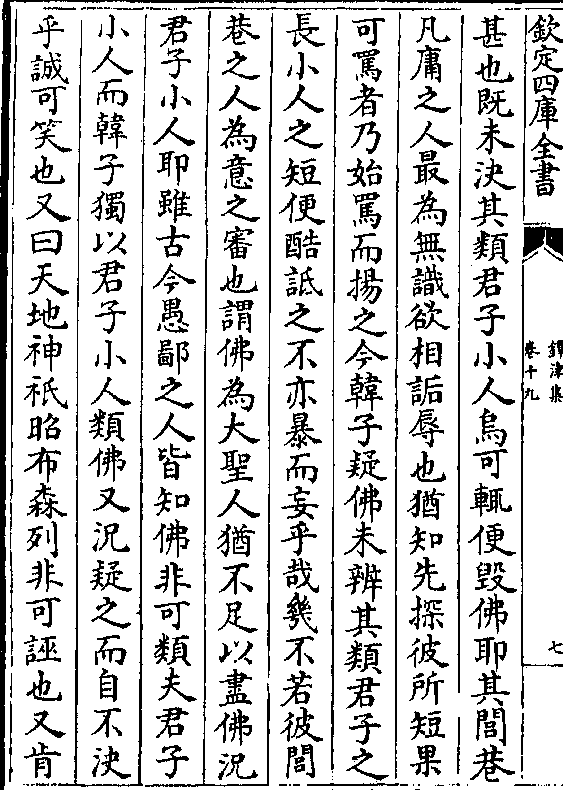 欽定四庫全書
鐔津集
卷十九
七
甚也既未決其類君子小人烏可輒便毀佛耶其閭巷
凡庸之人最為無識欲相詬辱也猶知先探彼所短果
可罵者乃始罵而揚之今韓子疑佛未辨其類君子之
長小人之短便酷詆之不亦暴而妄乎哉幾不若彼閭
巷之人為意之審也謂佛為大聖人猶不足以盡佛況
君子小人耶雖古今愚鄙之人皆知佛非可類夫君子
小人而韓子獨以君子小人類佛又況疑之而自不決
乎誠可笑也又曰天地神祇昭布森列非可誣也又肯